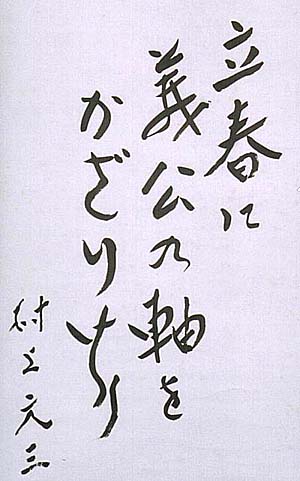 立春に
義公の軸を
かざりけり
村上元三